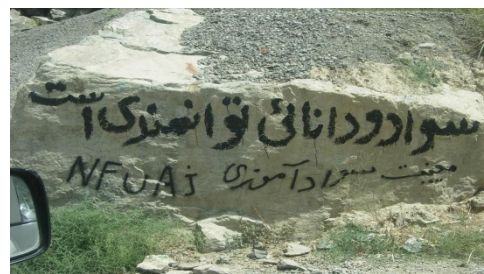 سواد و دانائی توانمندی است
مدیریت سواد آموزی NFUAJ